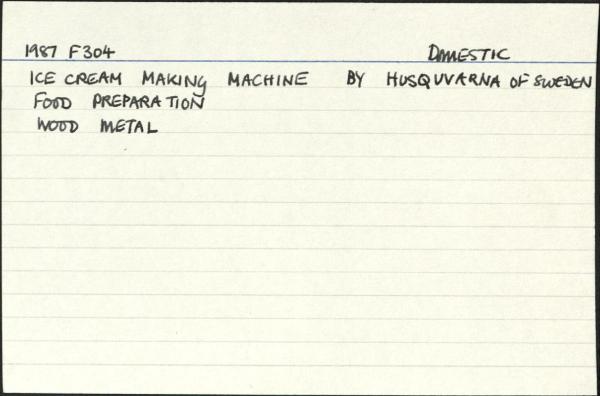 1987 F304 DOMESTIC
ICE CREAM MAKING MACHINE BY HUSQUVARNA OF SWEDEN
FOOD PREPARATION
WOOD METAL